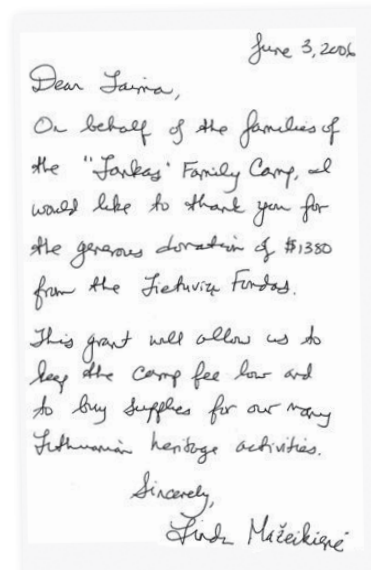 June 3, 2006
Dear Laima,
On behalf of the families of
the "Lankas" Family Camp, I
would like to thank you for
the generous donation of $1380
from the Lietuvių Fondas.
This grant will allow us to
keep the camp fee low and
to buy supplies for our many
Lithuanian heritage activities.
Sincerely,
Linda Mažeikienė